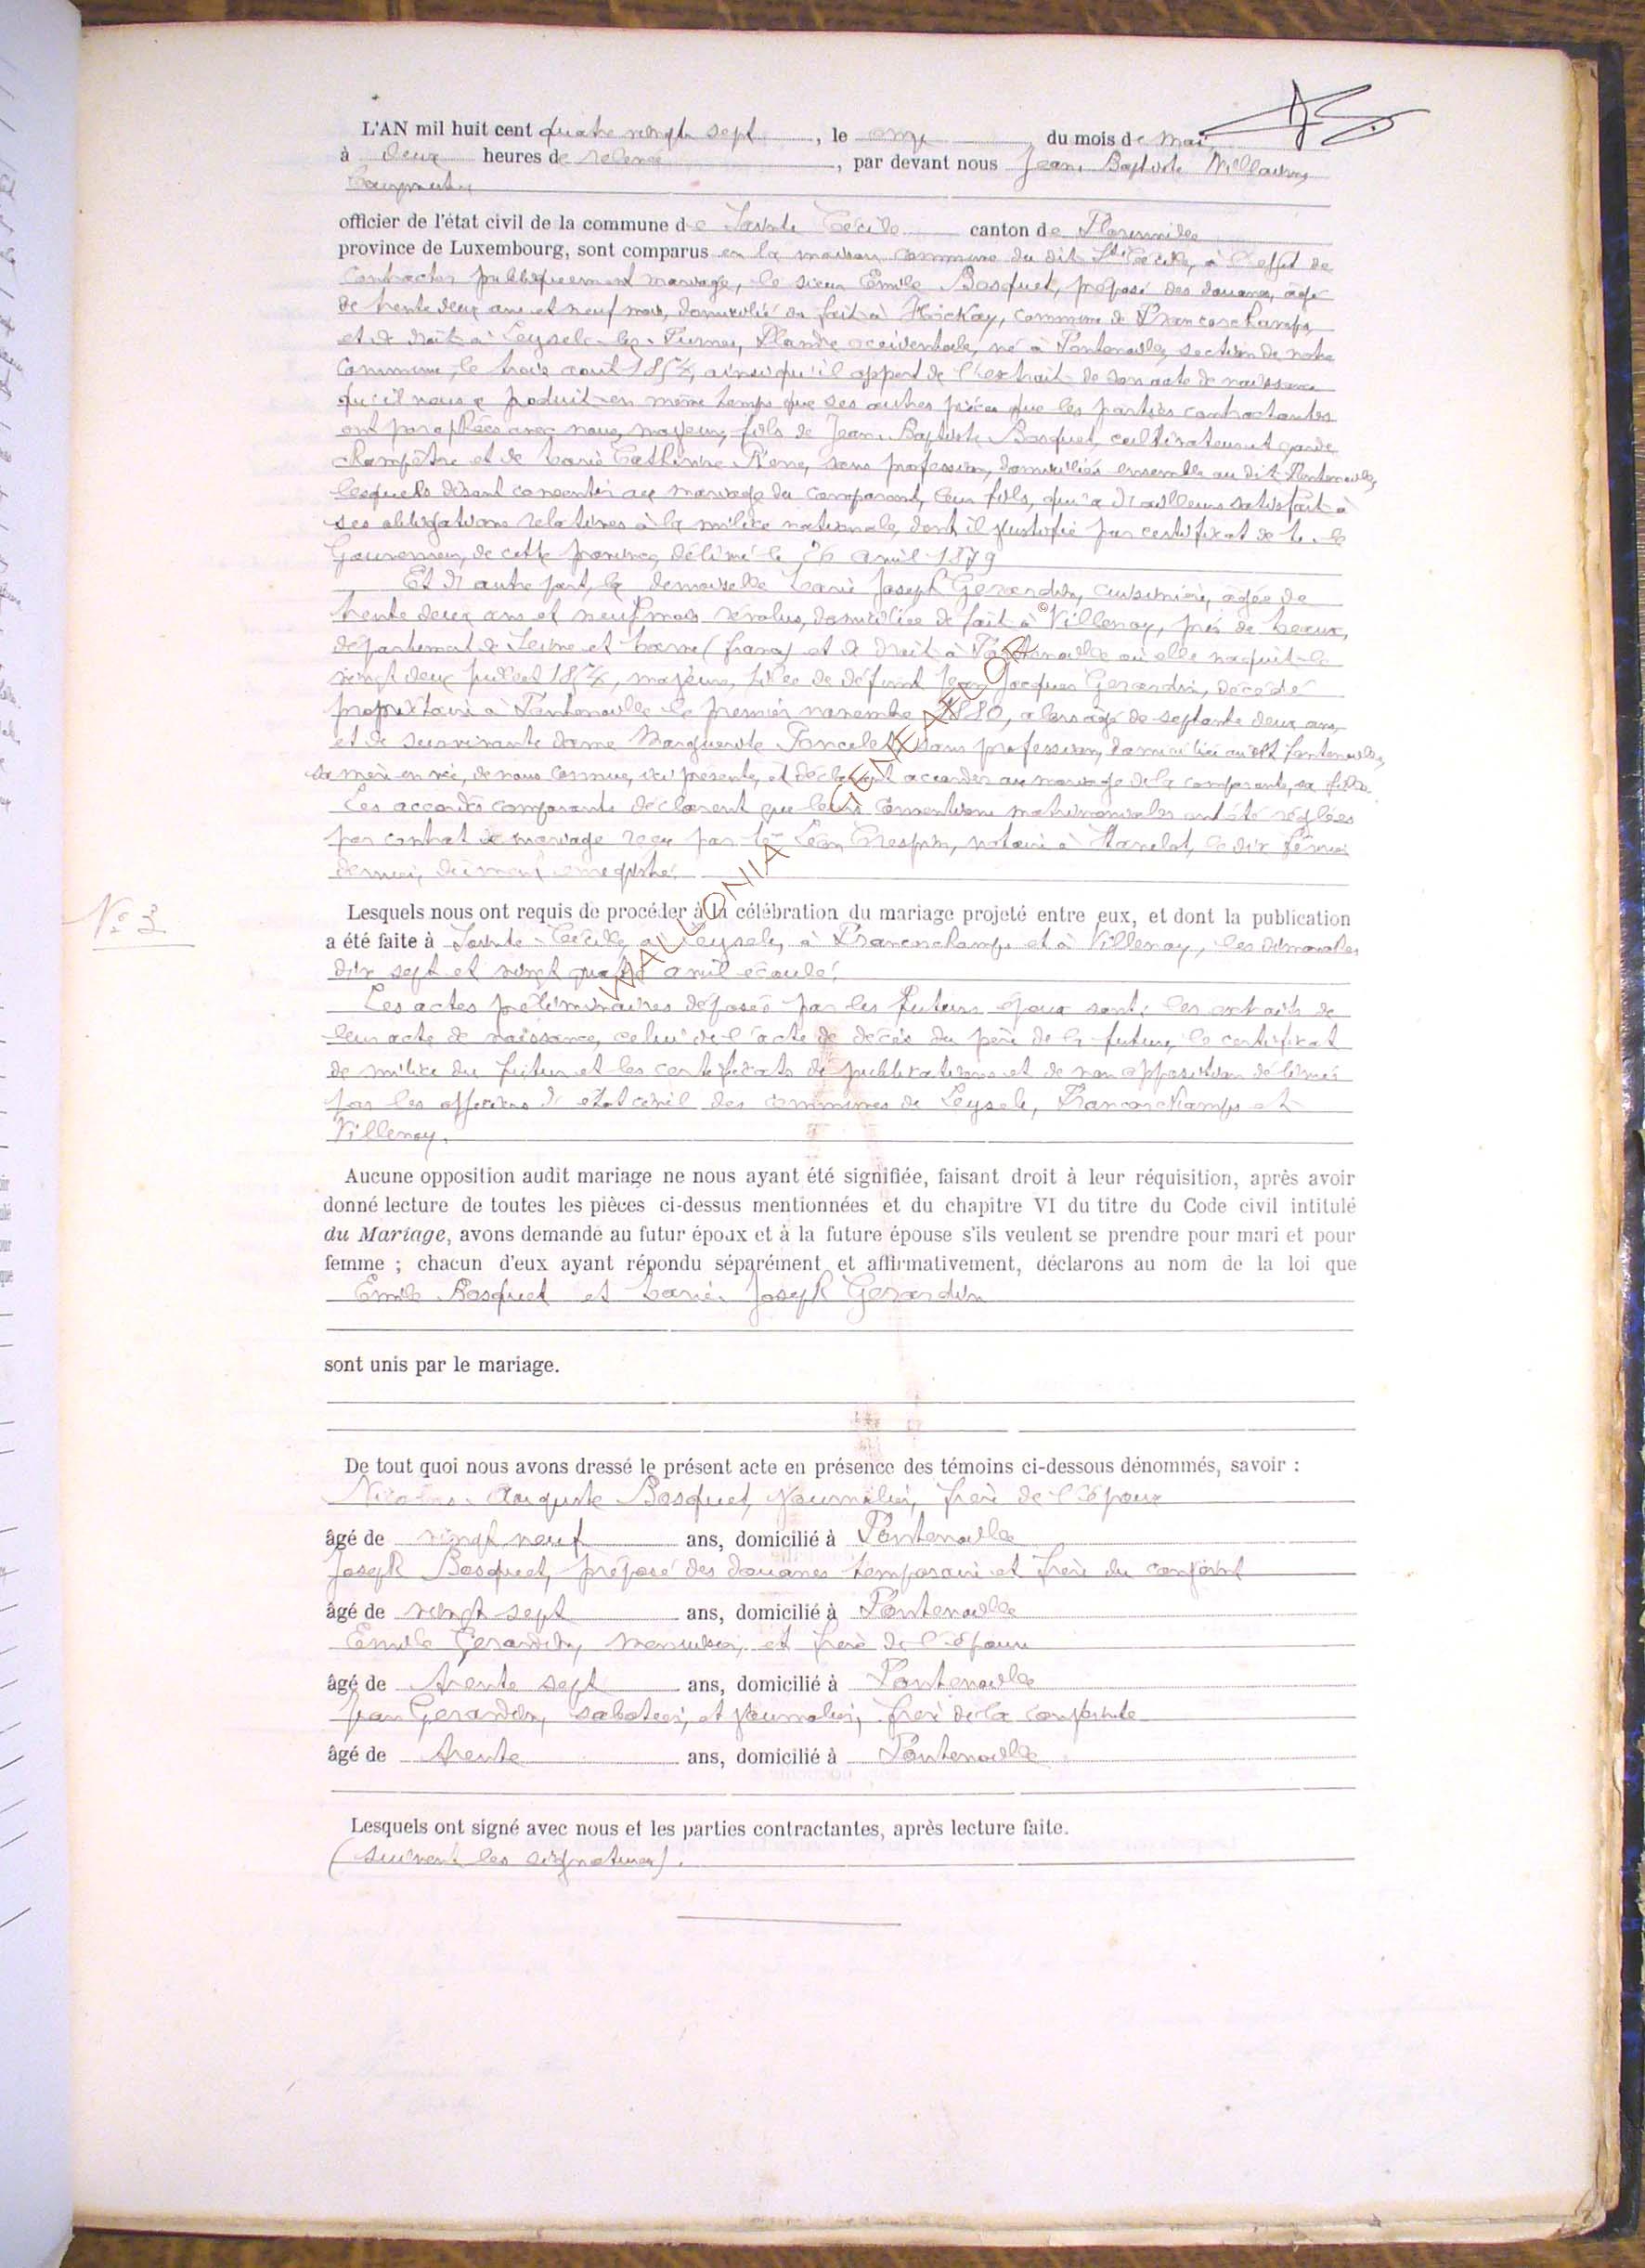 L'AN mil huit cent quatre vingt sept, le onze du mois de Mai
à deux heures de relevée, par devant nous Jean Baptiste Willaume
Bourgmestre
officier de l'état civil de la commune de Sainte Cécile canton de Florenville
province de Luxembourg, sont comparus en la maison commune du dit Ste Cécile, à l'effet de
contracter publiquement mariage, le sieur Emile Bosquet, préposé des douanes, âgé
de trente deux ans et neuf mois, domicilié de fait à Hockay, commune de Francorchamps,
et de droit à Leysele-lez-Furnes, Flandre occidentale, né à Fontenoille, section de notre
commune, le trois août 1854, ainsi qu'il appert de l'extrait de son acte de naissance
qu'il nous a produit en même temps que les autres pièces que les parties contractantes
ont paraphées avec nous, majeur, fils de Jean-Baptiste Bosquet, cultivateur et garde
champêtre et de Marie Catherine sans profession, domiciliés ensemble au dit Fontenoille,
lesquels disent consentir au mariage du comparant, leur fils, qui a d'ailleurs satisfait à
ses obligations relatives à la milice nationale, dont il justifie par certificat de M. le
Gouverneur de cette province, délivré le 26 avril 1879
Et d'autre part, la demoiselle Marie Joseph Gerardin, cuisinière, âgée de
trente deux ans et neuf mois révolus, domiciliée de fait à Villenoy, près de Meaux,
département de Seine et Marne (france) et de droit à Fontenoille où elle naquit le
vingt deux juillet 1854, majeure, fille de défunt Jean Jacques Gerardin, décédé
propriétaire à Fontenoille le premier novembre 1880, alors âgé de septante deux ans,
et de survivante dame Marguerite Poncelet sans profession, domiciliée au dit Fontenoille,
sa mère en vie, de nous connue, ici présente, et déclarant accorder au mariage de la comparante, sa fille.
Les accordés comparants déclarent que leurs conventions matrimoniales ont été réglées
par contrat de mariage reçu par Me Léon Crespin, notaire à le dix
dernier, dûment enregistré.
No 3
Lesquels nous ont requis de procéder à la célébration du mariage projeté entre eux, et dont la publication
a été faite à Sainte-Cécile, à Leysele, à Francorchamps et à Villenoy, les dimanches
dix sept et vingt quatre avril écoulé.
Les actes préliminaires déposés par les futurs époux sont: les extraits de
leur acte de naissance, celui de l'acte de décès du père de la future, le certificat
de milice du futur et les certificats de publications et de non opposition délivrés
par les officiers d'état civil des communes de Leysele, Francorchamps et
Villenoy.
Aucune opposition audit mariage ne nous ayant été signifiée, faisant droit à leur réquisition, après avoir
donné lecture de toutes les pièces ci-dessus mentionnées et du chapitre VI du titre du Code civil intitulé
du Mariage, avons demandé au futur époux et à la future épouse s'ils veulent se prendre pour mari et pour
femme ; chacun d'eux ayant répondu séparément et affirmativement, déclarons au nom de la loi que
Emile Bosquet et Marie Joseph Gerardin
sont unis par le mariage.
De tout quoi nous avons dressé le présent acte en présence des témoins ci-dessous dénommés, savoir :
Nicolas-Auguste Bosquet, journalier, frère de l'époux
âgé de vingt neuf ans, domicilié à Fontenoille
Joseph Bosquet, préposé des douanes temporaire et frère du conjoint
âgé de vingt sept ans, domicilié à Fontenoille
Emile Gerardin, menuisier, et frère de l'épouse
âgé de trente sept ans, domicilié à Fontenoille
Jean Gerardin, sabotier, et journalier, frère de la conjointe
âgé de trente ans, domicilié à Fontenoille
Lesquels ont signé avec nous et les parties contractantes, après lecture faite.
(suivent les signatures).
WALLONIA GENEAFLOR ©